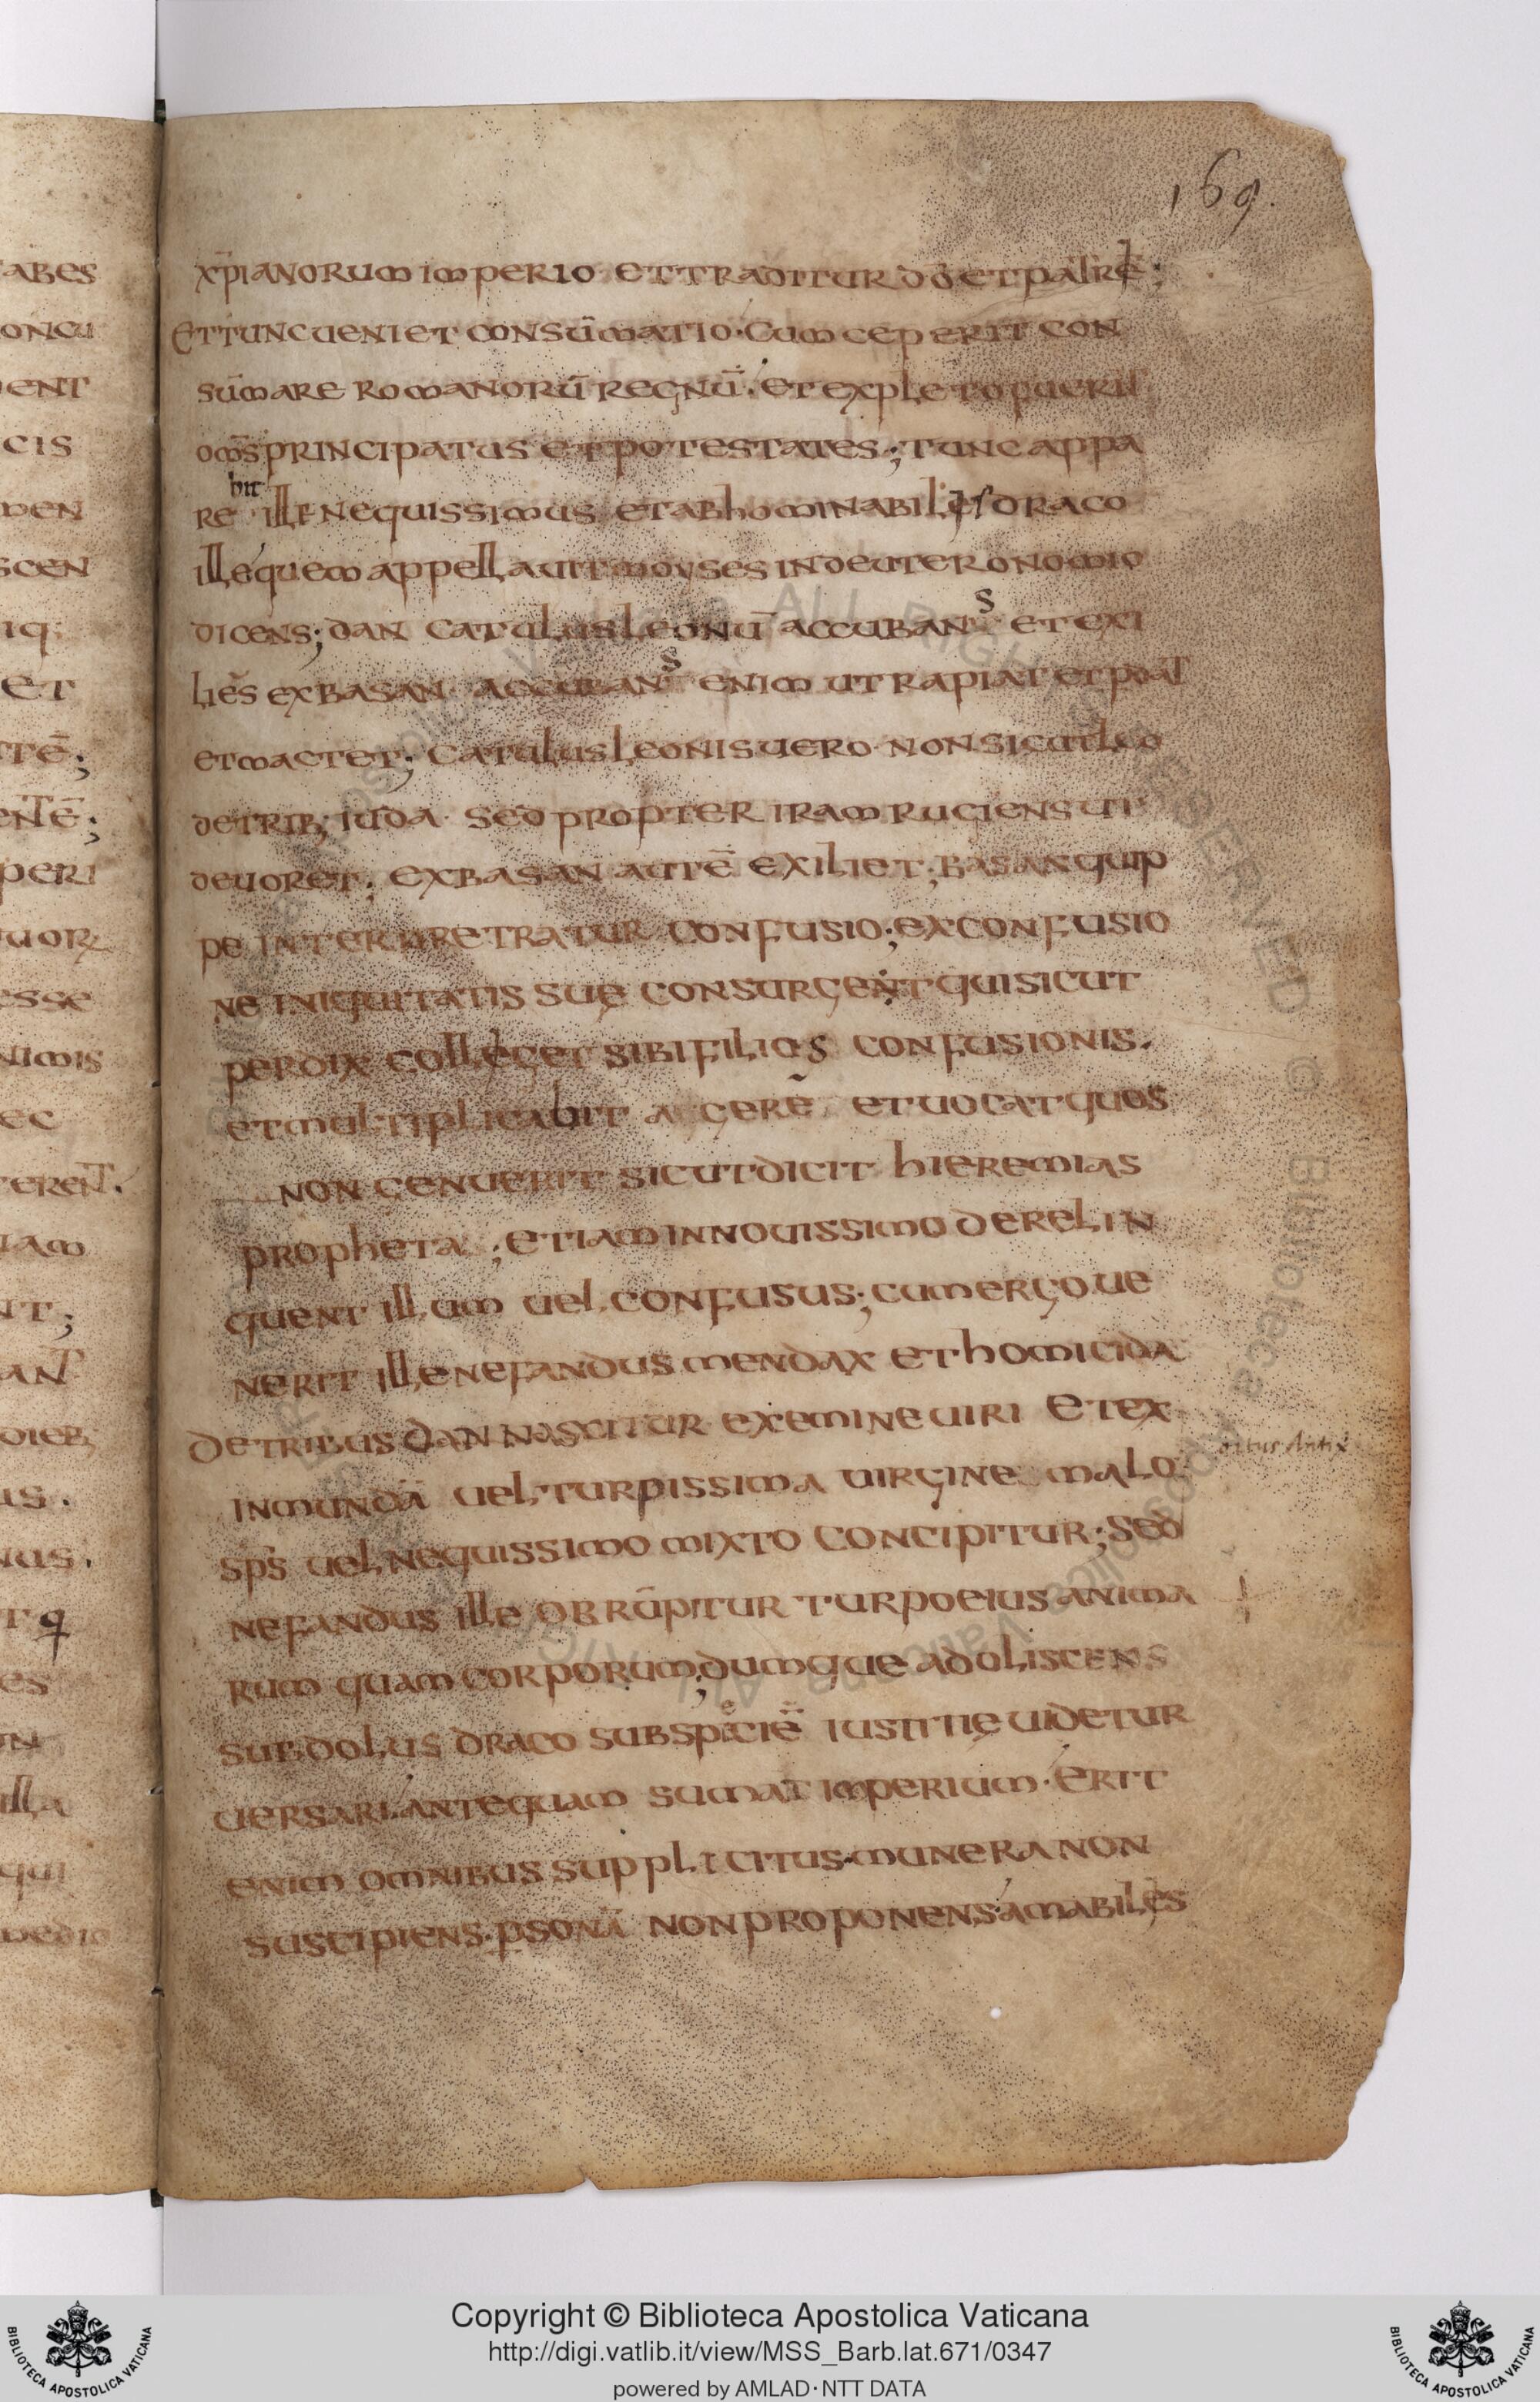 169.
xp̄ianorum imperio et traditur dō et patre;
Et tunc ueniet consūmatio. Cum ceperit con
sūmare romanorū regnū. et expleto fuerit
om̄s principatus et potestates; tunc appa
rebit ille nequissimus et abhominabilis draco
ille quem appellauit moyses in deuteronomio
dicens; dan catulus leonū accubans et exi
lies ex basan accubans enim ut rapiat et p̄dat
et mactet; Catulus leonis uero non sicut leo
de trib; iuda sed propter iram ruciens ut
deuoret; ex basan autē exiliet; basan quip
pe interpretratur confusio; ex confusio
ne iniquitatis suę consurgent qui sicut
perdix colleget sibi filios confusionis.
et multiplicabit agerē et uocat quos
non genuerit sicut dicit hieremias
propheta; etiam in nouissimo derelin
quent illum uel confusus; cum ergo ue
nerit ille nefandus mendax et homicida
de tribus dan nascitur ex emine uiri et ex
inmunda uel turpissima uirgine malo
sp̄s uel nequissimo mixto concipitur; sed
nefandus ille obrūpitur turpo eius anima
rum quam corporum; dumque adoliscens
subdolus draco sub specię iustitię uidetur
uersari antequam sumat imperium. erit
enim omnibus supplicitus. munera non
suscipiens. psonā non proponens amabiles
ortus Antix̄
Copyright © Biblioteca Apostolica Vaticana
http://digi.vatlib.it/view/MSS_Barb.lat.671/0347
powered by AMLAD·NTT DATA
BIBLIOTECA APOSTOLICA VATICANA
BIBLIOTECA APOSTOLICA VATICANA